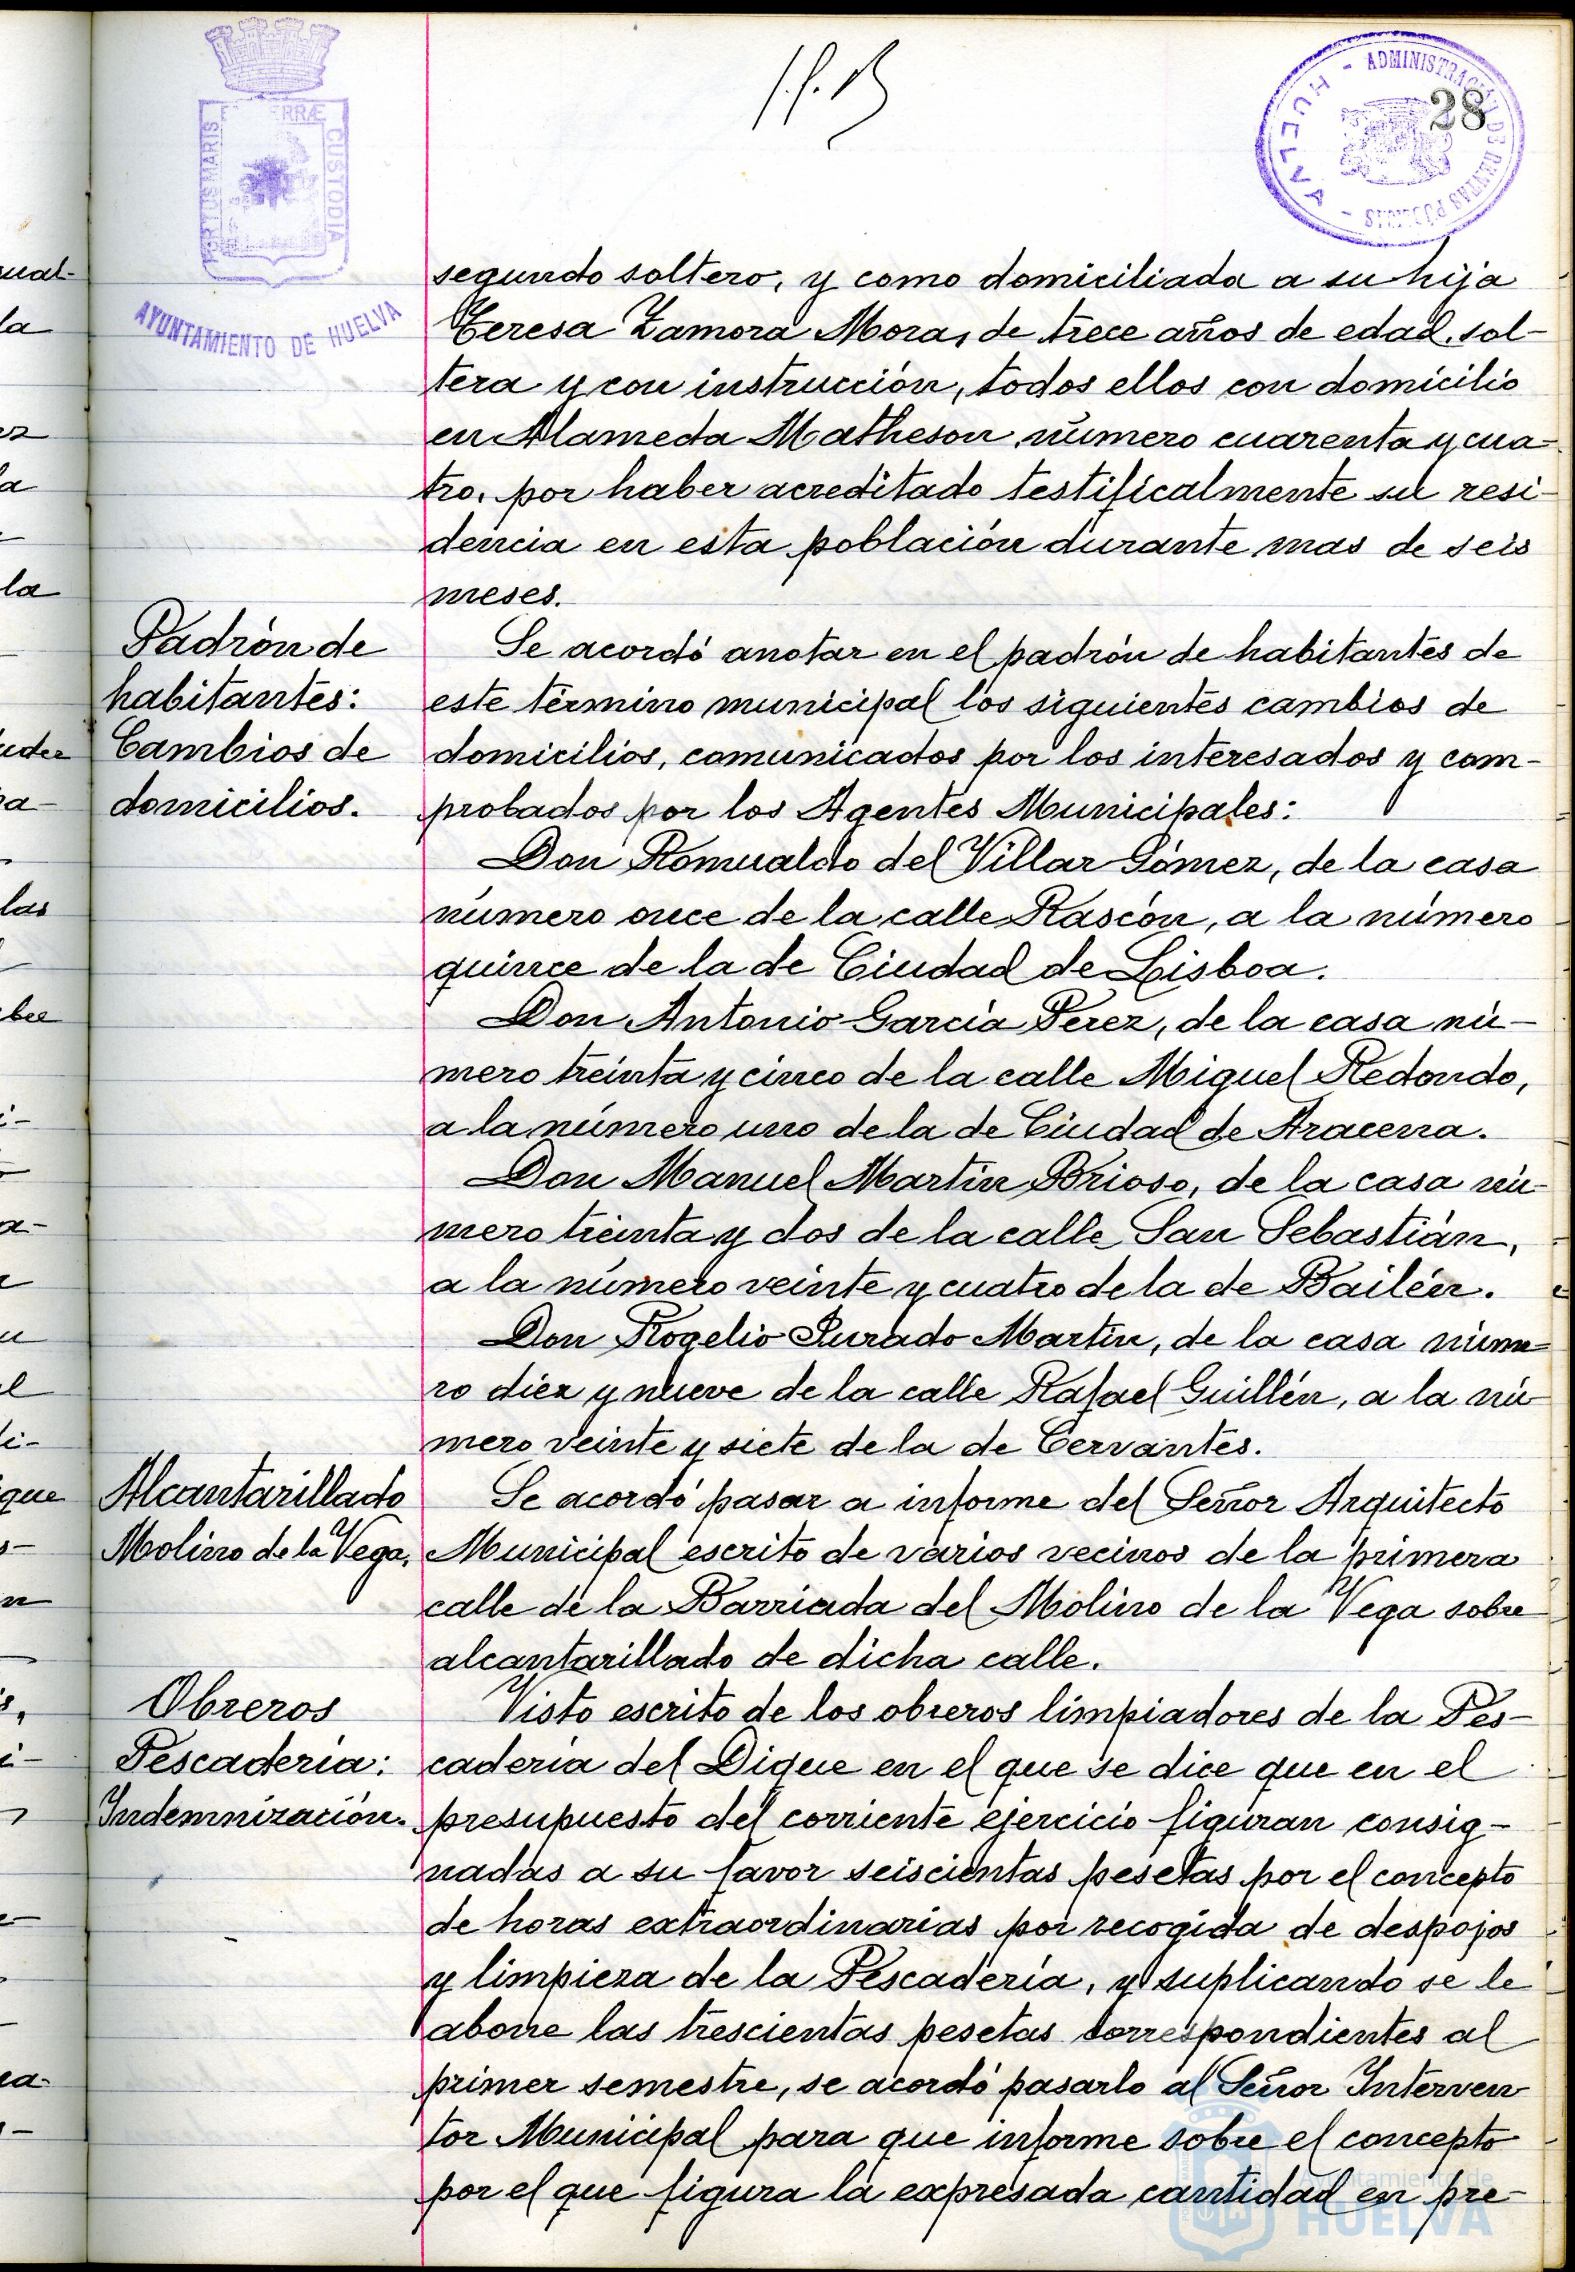 28
ADMINISTRACIÓN DE RENTAS PÚBLICAS - HUELVA -
PORTUS MARIS
TERRÆ
CUSTODIA
AYUNTAMIENTO DE HUELVA
segundo soltero, y como domiciliada a su hija
Teresa Zamora Mora, de trece años de edad, sol-
tera y con instrucción, todos ellos con domicilio
en Alameda Matheson número cuarenta y cua-
tro, por haber acreditado testificalmente su resi-
dencia en esta población durante mas de seis
meses.
Padrón de
habitantes:
Cambios de
domicilios.
Se acordó anotar en el padrón de habitantes de
este término municipal los siguientes cambios de
domicilios, comunicados por los interesados y com-
probados por los Agentes Municipales:
Don Romualdo del Villar Gómez, de la casa
número once de la calle Rascón, a la número
quince de la de Ciudad de Lisboa.
Don Antonio García Pérez, de la casa nú-
mero treinta y cinco de la calle Miguel Redondo,
a la número uno de la de Ciudad de Aracena.
Don Manuel Martín Brioso, de la casa nú-
mero treinta y dos de la calle San Sebastián,
a la número veinte y cuatro de la de Bailén.
Don Rogelio Jurado Martín, de la casa núme-
ro diez y nueve de la calle Rafael Guillén, a la nú-
mero veinte y siete de la de Cervantes.
Alcantarillado
Molino de la Vega.
Se acordó pasar a informe del Señor Arquitecto
Municipal escrito de varios vecinos de la primera
calle de la Barriada del Molino de la Vega sobre
alcantarillado de dicha calle.
Obreros
Pescadería:
Indemnización.
Visto escrito de los obreros limpiadores de la Pes-
cadería del Dique en el que se dice que en el
presupuesto del corriente ejercicio figuran consig-
nadas a su favor seiscientas pesetas por el concepto
de horas extraordinarias por recogida de despojos
y limpieza de la Pescadería, y suplicando se le
abone las trescientas pesetas correspondientes al
primer semestre, se acordó pasarlo al Señor Interven
tor Municipal para que informe sobre el concepto
por el que figura la expresada cantidad en pre-
Ayuntamiento de
HUELVA